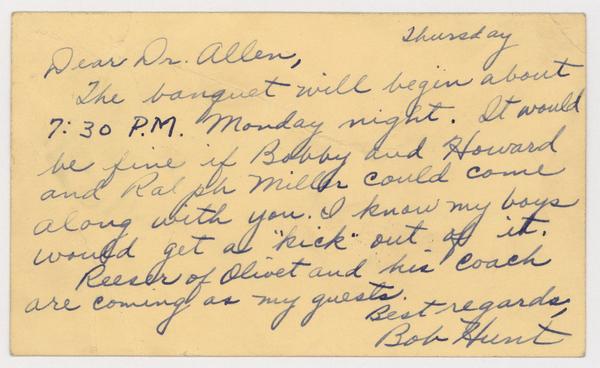 Thursday
Dear Dr. Allen,
The banquet will begin about
7:30 P.M. Monday night. It would
be fine if Bobby and Howard
and Ralph Miller could come
along with you. I know my boys
would get a "kick" out of it.
Reeser of Olivet and his coach
are coming as my guests.
Best regards,
Bob Hunt